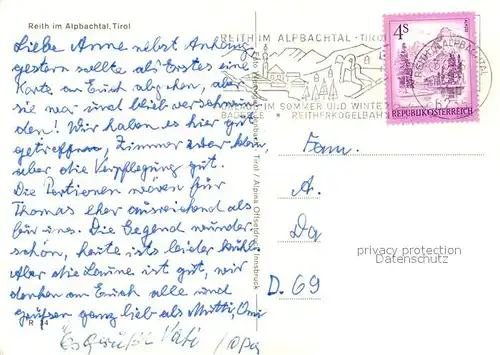 Reith im Alpbachtal, Tirol
Liebe Anne nebst Anhang,
gestern sollte als Erstes eine
Karte an Euch abgehen, aber
sie war und blieb verschwun
den! Wir haben es hier gut
getroffen, Zimmer zwar klein,
aber die Verpflegung gut.
Die Portionen waren für
Thomas eher ausreichend als
für uns. Die Gegend wunder
schön, heute ists leider kühl.
Aber die Laune ist gut, wir
denken an Euch alle und
grüßen ganz lieb als Mutti, Omi
R 24
Es grüßt Vati / Opa
REITH IM ALPBACHTAL · TIROL
IM SOMMER UND WINTER
BADESEE * REITHERKOGELBAHN
REITH IM ALPBACHTAL
4S
REPUBLIK ÖSTERREICH
Tirol / Alpina Offsetdruck, Innsbruck
Fam.
A.
Da
D. 69
privacy protection
Datenschutz